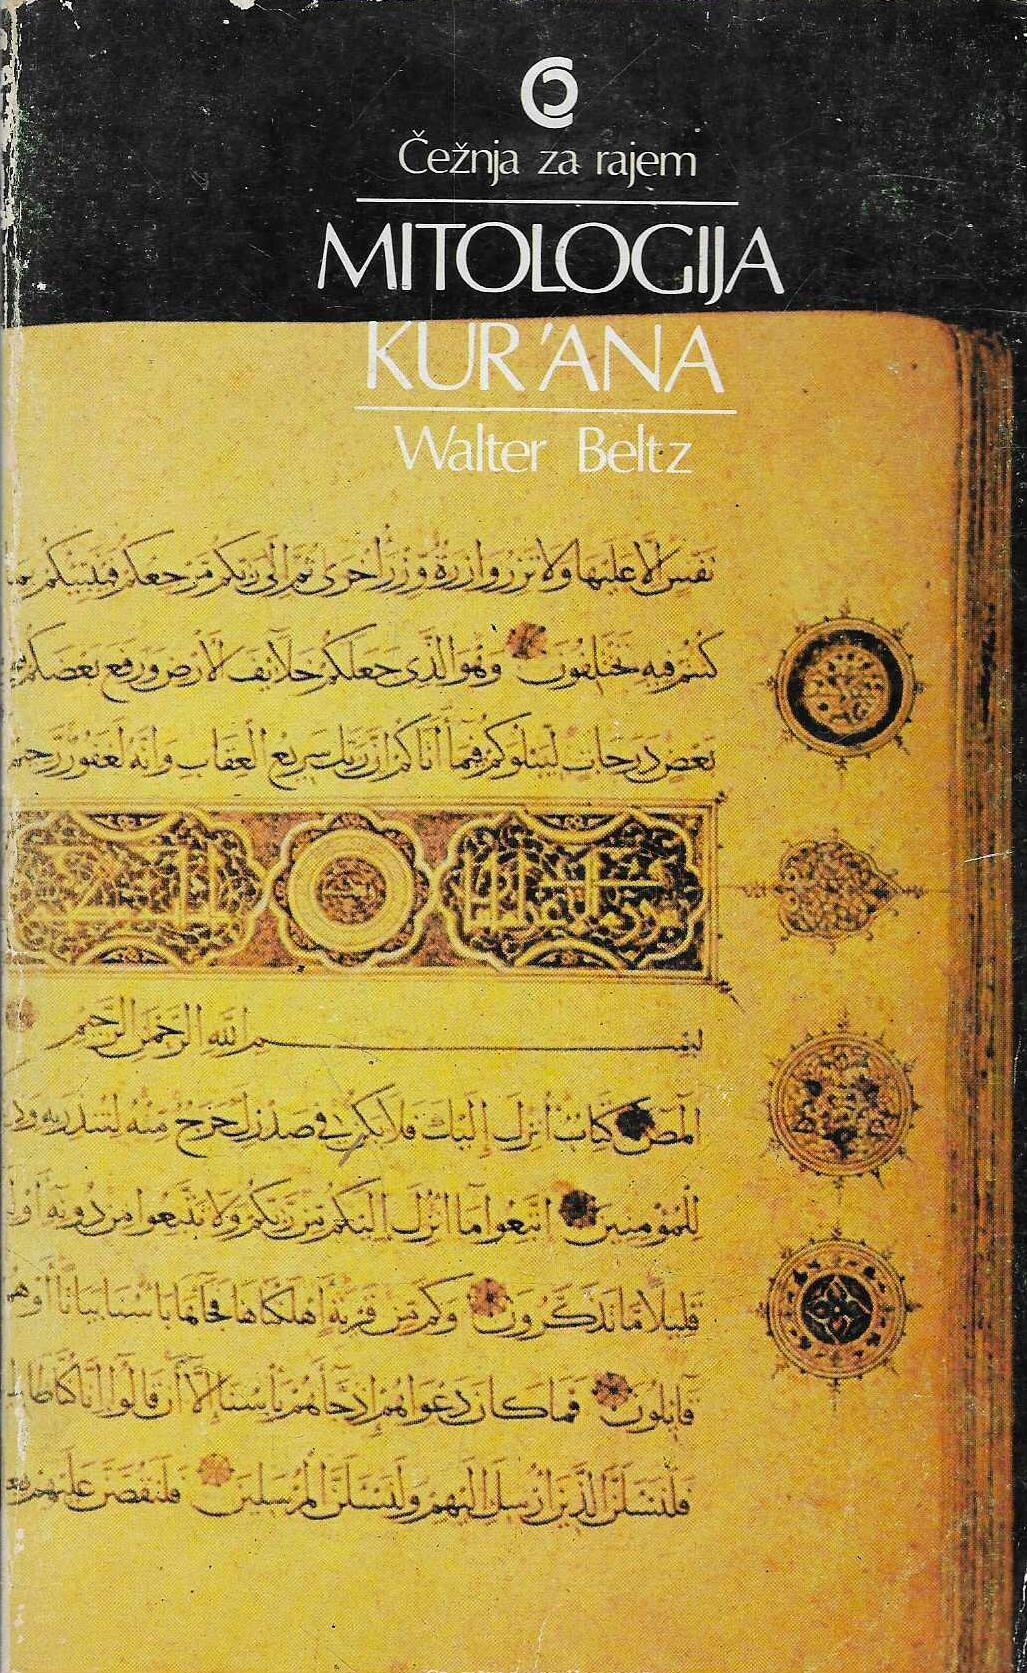 Čežnja za rajem
MITOLOGIJA
KUR'ANA
Walter Beltz
نفس إلا عليها ولا تزر وازرة وزر أخرى ثم إلى ربكم مرجعكم فينبئكم
كنتم فيه تختلفون وهو الذي جعلكم خلائف الأرض ورفع بعضكم
بعض درجات ليبلوكم فيما آتاكم إن ربك سريع العقاب وإنه لغفور رحيم
بسم الله الرحمن الرحيم
المص كتاب أنزل إليك فلا يكن في صدرك حرج منه لتنذر به
للمؤمنين اتبعوا ما أنزل إليكم من ربكم ولا تتبعوا من دونه
قليلا ما تذكرون وكم من قرية أهلكناها فجاءها بأسنا بياتا أو هم
قائلون فما كان دعواهم إذ جاءهم بأسنا إلا أن قالوا إنا كنا
فلنسئلن الذين أرسل إليهم ولنسئلن المرسلين فلنقصن عليهم